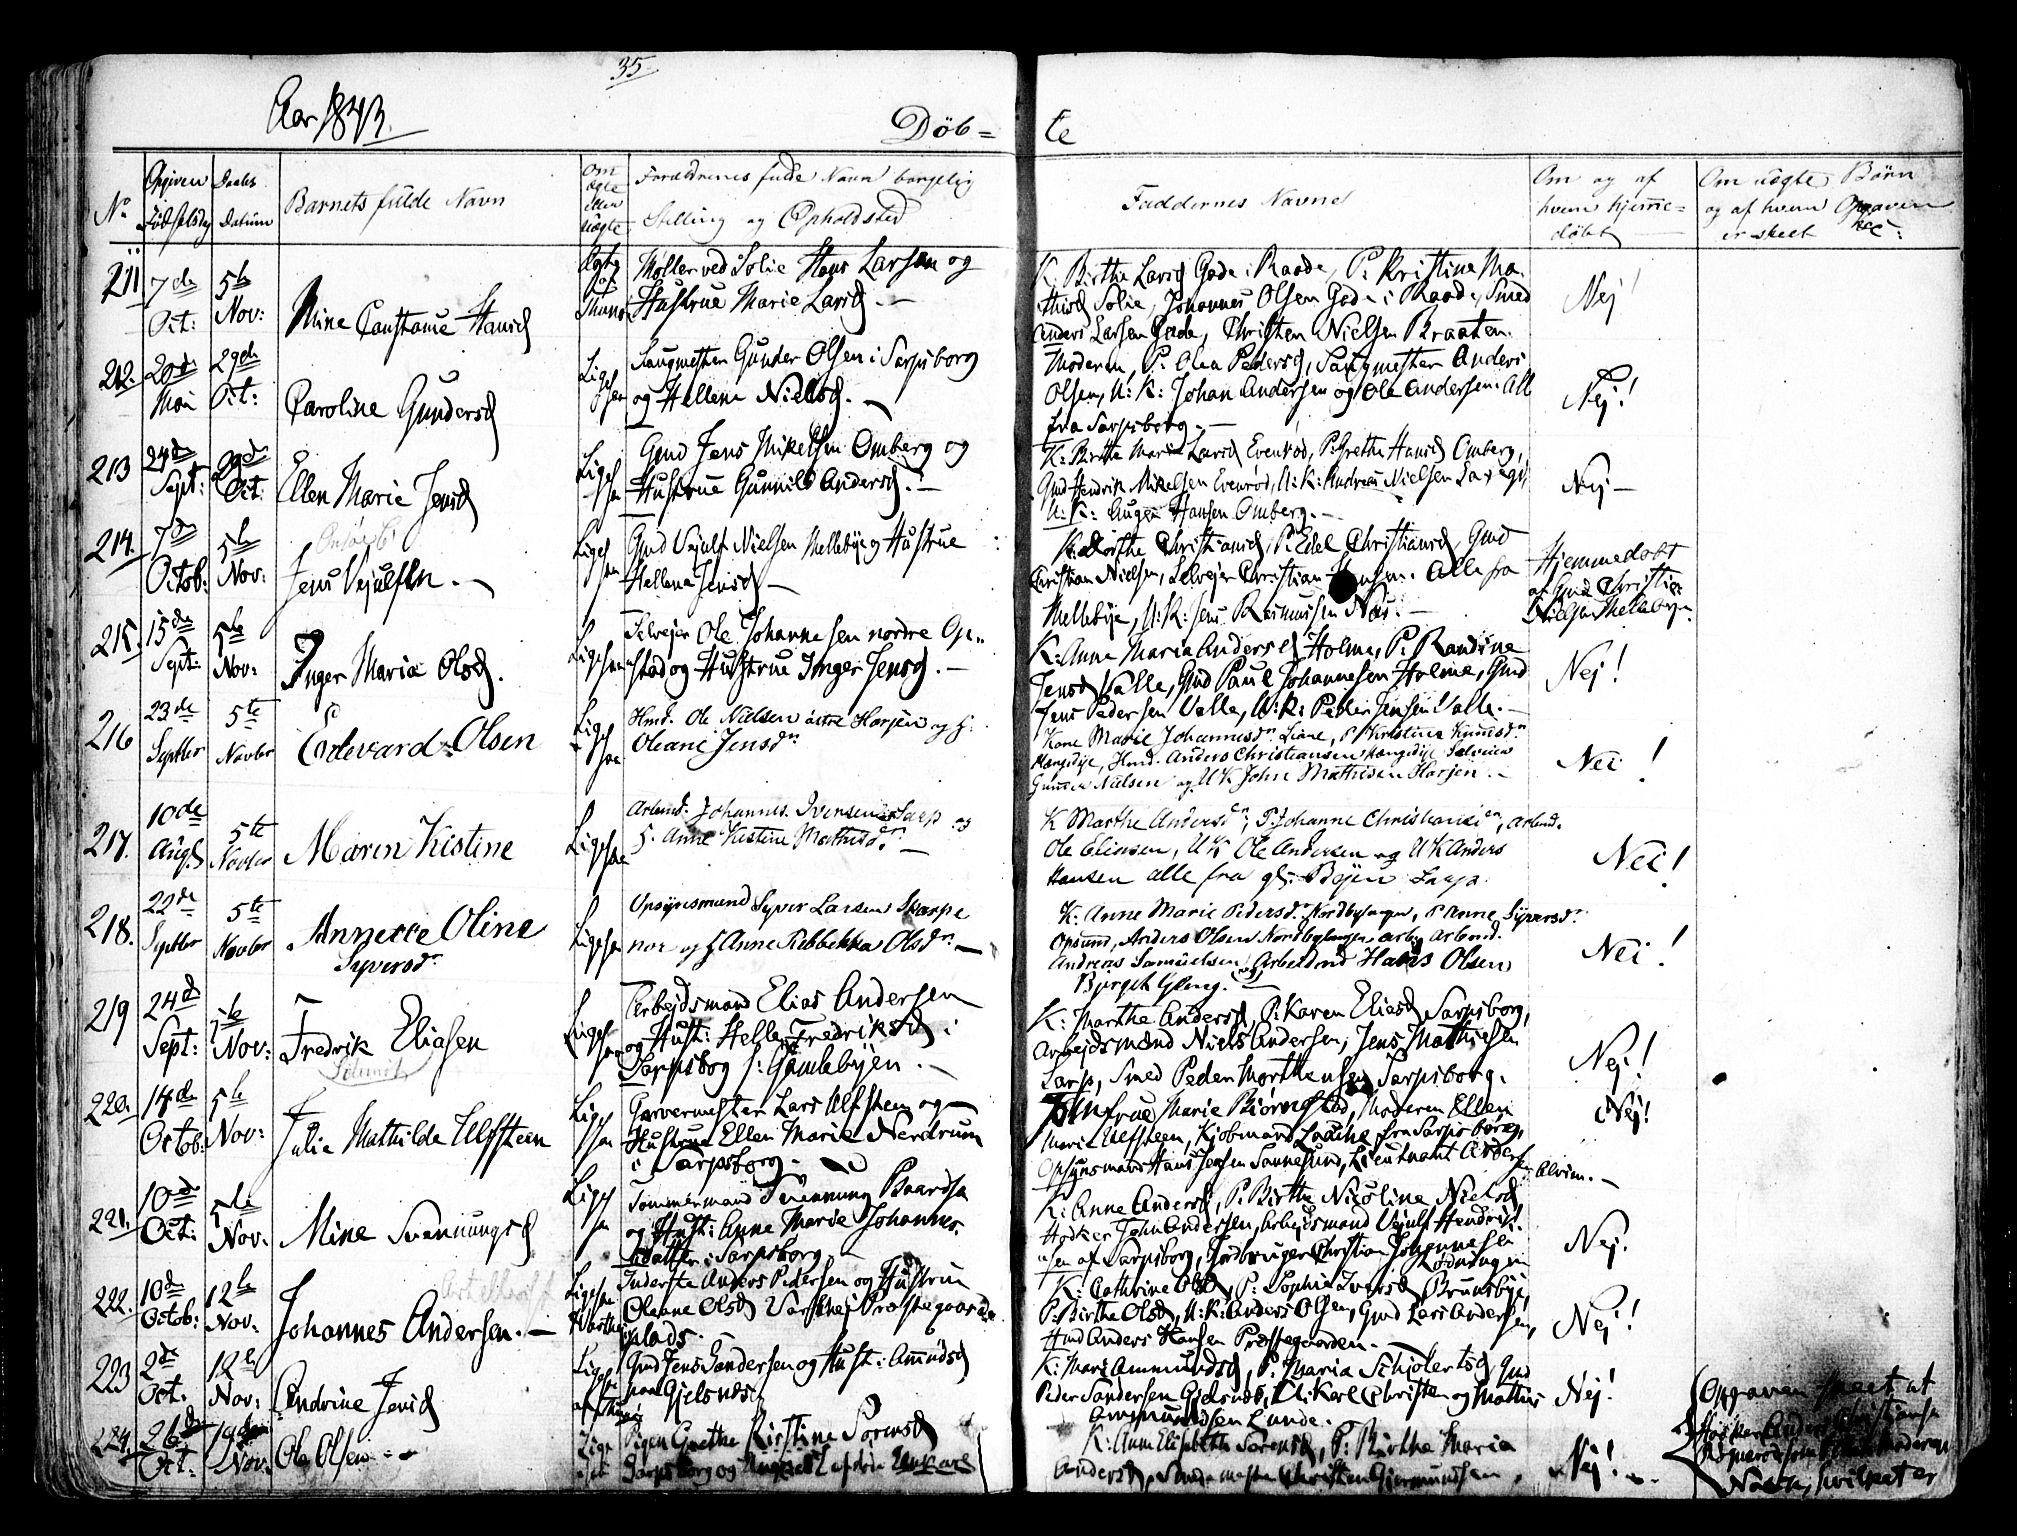 35
Aar 1843.
Döb=
te
No
Opgiven Födselsdag
Daabs Datum
Barnets fulde Navn
Om ægte eller uægte
Forældrenes fulde Navn borgelig
Stilling og Opholdsted
Faddernes Navne
Om og af
hvem hjemme=
döbt
Om uægte Börn
og af hvem Opgaven
er skeet
211
7de Oct:
5te Nov:
Mine Constance Hansd
Möller ved Solie Hans Larsen og
Hustrue Marie Larsd. -
K. Birthe Larsd Gade i Raade, P. Kristine Ma-
thisd Solie, Johannes Olsen Gade i Raade, Smed
Anders Larsen Gade, Christen Nielsen Braaten.
Nej!
212.
20de Mai
29de Oct:
Caroline Gundersd
Ligesaa
Laugmester Gunder Olsen i Sarpsborg
og Hellene Nielsd. -
Moderen, P. Olea Pedersd, Laugmester Anders
Olsen, U: K: Johan Andersen og Ole Andersen. Alle
fra Sarpsborg. -
Nej!
213
24de Sept:
29de Oct:
Ellen Marie Jensd
Ligesaa
Gmd Jens Mikelsen Omberg og
Hustrue Gunnild Andersd. -
K: Birthe Maria Larsd Evenröd, P: Grethe Hansd Omberg,
Gmd Hendrik Mikelsen Evenröd, U: K: Andreas Nielsen
U: K: August Hansen Omberg. -
Nej -
214.
7de Octob:
5te Nov:
Jens Vejulfsen. -
Ligesaa
Gmd Vejulf Nielsen Mellebye og Hustrue
Hellena Jensd -
K: Dorthe Christiansd, P: Edel Christiansd, Gmd
Christian Nielsen, Selvejer Christian Hansen. Alle fra
Mellebye, U: K: Jens Rasmussen Næs. -
Hjemmedöbt
af Gmd Christian
Nielsen Mellebye.
215.
15de Sept:
5te Nov:
Inger Maria Olsd.
Ligesaa
Selvejer Ole Johannesen nordre Op-
stad og Hustrue Inger Jensd. -
K: Anna Maria Andersd Holme, P: Randine
Jensd Valle, Gmd Paul Johannesen Holme, Gmd
Jens Pedersen Valle, U: K: Peder Jensen Valle. -
Nej!
216
23de Septbr
5te Novbr
Edevard Olsen
Ligesaa
Hmd. Ole Nielsen östre Horjen og H:
Oleane Jensdr
Kone Marie Johannesdr Liane, P Kristine Knudsdr
Hængedije, Hmd. Anders Christiansen Hængedije Selveier
Gunder Nielsen og UK John Mathisen Horjen. -
Nei!
217.
10de Augs
5te Novbr
Maren Kistine
Ligesaa
Arbmd. Johannes Ivensen Sarp og
H. Anne Kistine Mathisdr. -
K Marthe Andersdr, P. Johanne Christiansdr, Arbmd.
Ole Eliasen, UK Ole Andersen og UK Anders
Hansen alle fra gl: Byen Sarp
Nei!
218.
22de Septbr
5te Novbr
Annette Oline
Syversdr
Ligesaa
Opsynsmand Syver Larsen Skarpe
nor og H Anne Rebbekka Olsdr. -
K: Anne Marie Pedersdr Nordbylangen, P Anne Syversdr
Opsund, Anders Olsen Nordbylangen Arbmd.
Andreas Samuelsen Arbeidmd Hans Olsen
Bjerget Gleng. -
Nei!
219
24de Sept:
5te Nov:
Fredrik Eliasen
Ligesaa
Arbejdsmand Elias Andersen
og Hust: Helle Fredriksd i
Sarpsborg i Gamlebyen. -
K: Marthe Andersd, P. Karen Eliasd Sarpsborg,
Arbejdsmænd Niels Andersen, Jens Mathiesen
Sarp, Smed Peder Morthensen Sarpsborg.
Nej!
220.
14de Octob:
5te Nov:
Julie Mathilde Ulfsteen
Ligesaa
Garvermester Lars Ulfsteen og
Hustrue Ellen Marie Nerdrum
i Sarpsborg. -
Jomfrue Marie Björnstad, Moderen Ellen
Marie Ulfsteen, Kjöbmand fra Sarpsborg,
Opsynsmand Hans Jensen Sannesund, Lieutnant Andersen
Alvim. -
Nej!
221.
10de Oct:
5te Nov:
Mine Svennungsd
Ligesaa
Tömmermand Svennung Baardsen
og Hust: Anne Marie Johannes-
datter i Sarpsborg -
K: Anne Andersd, P. Birthe Nicoline Nielsd
Höker John Andersen, Arbejdsmand Vejulf Hendrik-
sen af Sarpsborg, Jordbruger Christian Johannesen
Nej.
222.
10de Octob:
12te Nov:
Johannes Andersen. -
Ligesaa
Inderste Anders Pedersen og Hustrue
Oleane Olsd Præstegaards
plads. -
K: Cathrine Olsd, P: Sophie Iversd Brunsbye,
P. Birthe Olsd, U: K: Anders Olsen, Gmd Lars Andersen,
Hmd Anders Hansen Præstegaarden. -
Nej!
223
2de Oct.
12te Nov:
Andrine Jensd
Gmd Jens Sandersen og Hust: Amundsd
paa Gjelsnæs.
K: Mari Ammundsd, P. Maria Schjolertsd, Gmd
Peder Sandersen Gjelsnæs, U. Karl Christen og Mathis
Ammundsen Lunde.
Nej!
224.
26de Oct:
Nov:
Ole Olsen. -
Pigen Grethe Kirstine Sörensd
Sarpsborg og
K: Anne Elisabeth Sörensd, P: Birthe Maria
Andersd, Christen Gjermundsen,
Nej! -
Opgaven skeet af
Höker Anders Christiansen